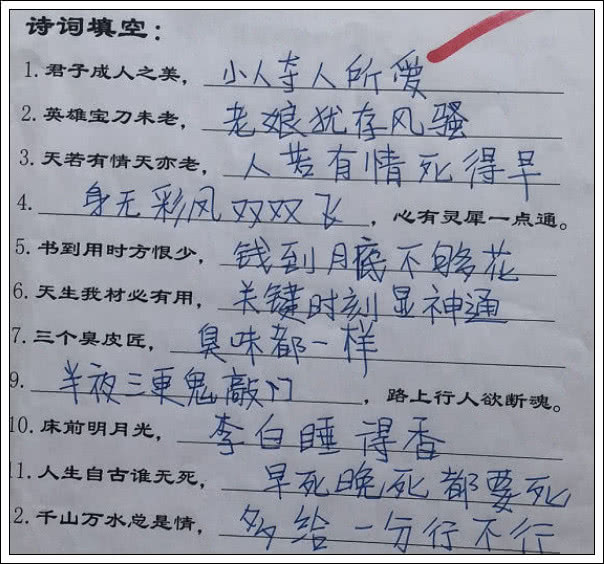 诗词填空：
1. 君子成人之美，小人夺人所爱
2. 英雄宝刀未老，老娘犹存风骚
3. 天若有情天亦老，人若有情死得早
4. 身无彩凤双双飞，心有灵犀一点通。
5. 书到用时方恨少，钱到月底不够花
6. 天生我材必有用，关键时刻显神通
7. 三个臭皮匠，臭味都一样
9. 半夜三更鬼敲门，路上行人欲断魂。
10. 床前明月光，李白睡得香
11. 人生自古谁无死，早死晚死都要死
2. 千山万水总是情，多给一分行不行